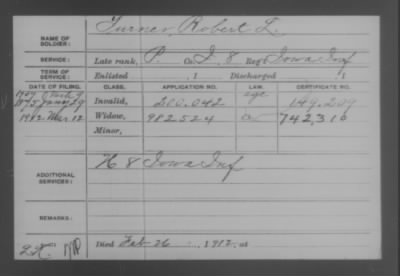 NAME OF SOLDIER: Turner, Robert L.
SERVICE: Late rank, P. Co. I, 8 Reg't Iowa Inf
TERM OF SERVICE: Enlisted , 1 Discharged , 1
DATE OF FILING. CLASS. APPLICATION NO. LAW. CERTIFICATE NO.
1875 Invalid, 210.042 age 149.209
1912 Mar 12 Widow, 982524 742,310
Minor,
ADDITIONAL SERVICES: K 8 Iowa Inf
REMARKS:
Died Feb 26 , 1912, at